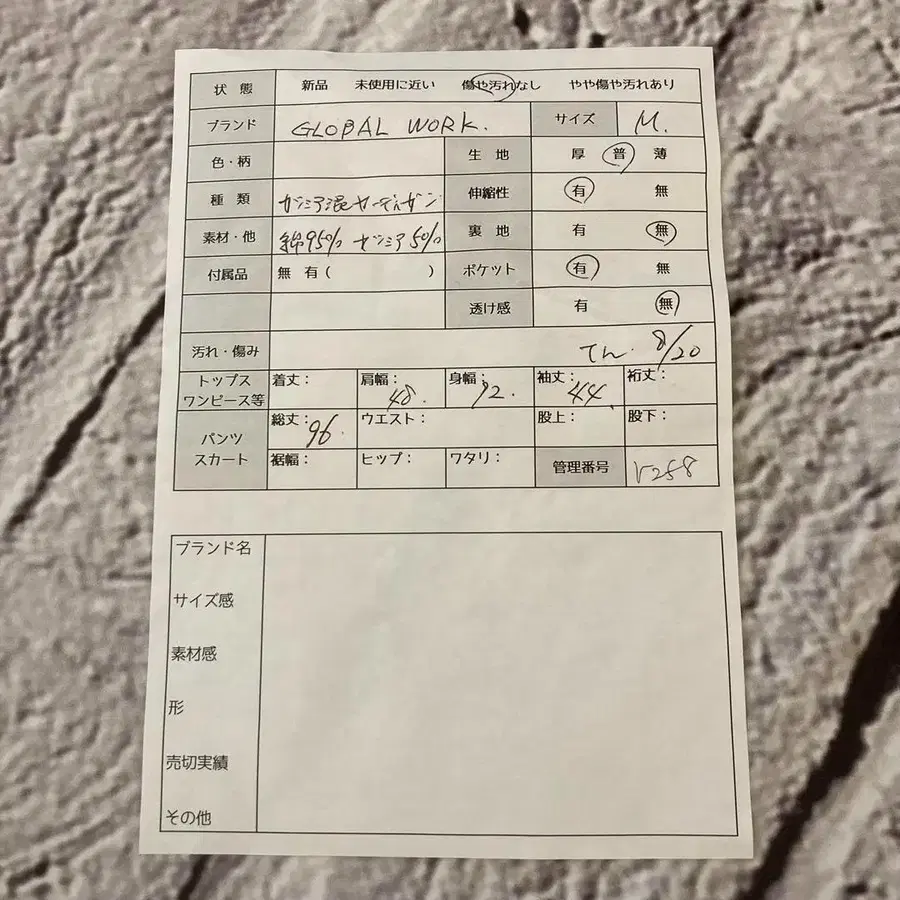 状 態 新品 未使用に近い 傷や汚れなし やや傷や汚れあり
ブランド GLOBAL WORK. サイズ M.
色・柄 生 地 厚 普 薄
種 類 カシミア混カーディガン 伸縮性 有 無
素材・他 綿95% カシミア5% 裏 地 有 無
付属品 無 有 ( ) ポケット 有 無
透け感 有 無
汚れ・傷み てん. 8/20
トップス ワンピース等 着丈: 肩幅: 48. 身幅: 袖丈: 44. 裄丈:
パンツ スカート 総丈: 96. ウエスト: 股上: 股下:
裾幅: ヒップ: ワタリ: 管理番号 V258
ブランド名
サイズ感
素材感
形
売切実績
その他